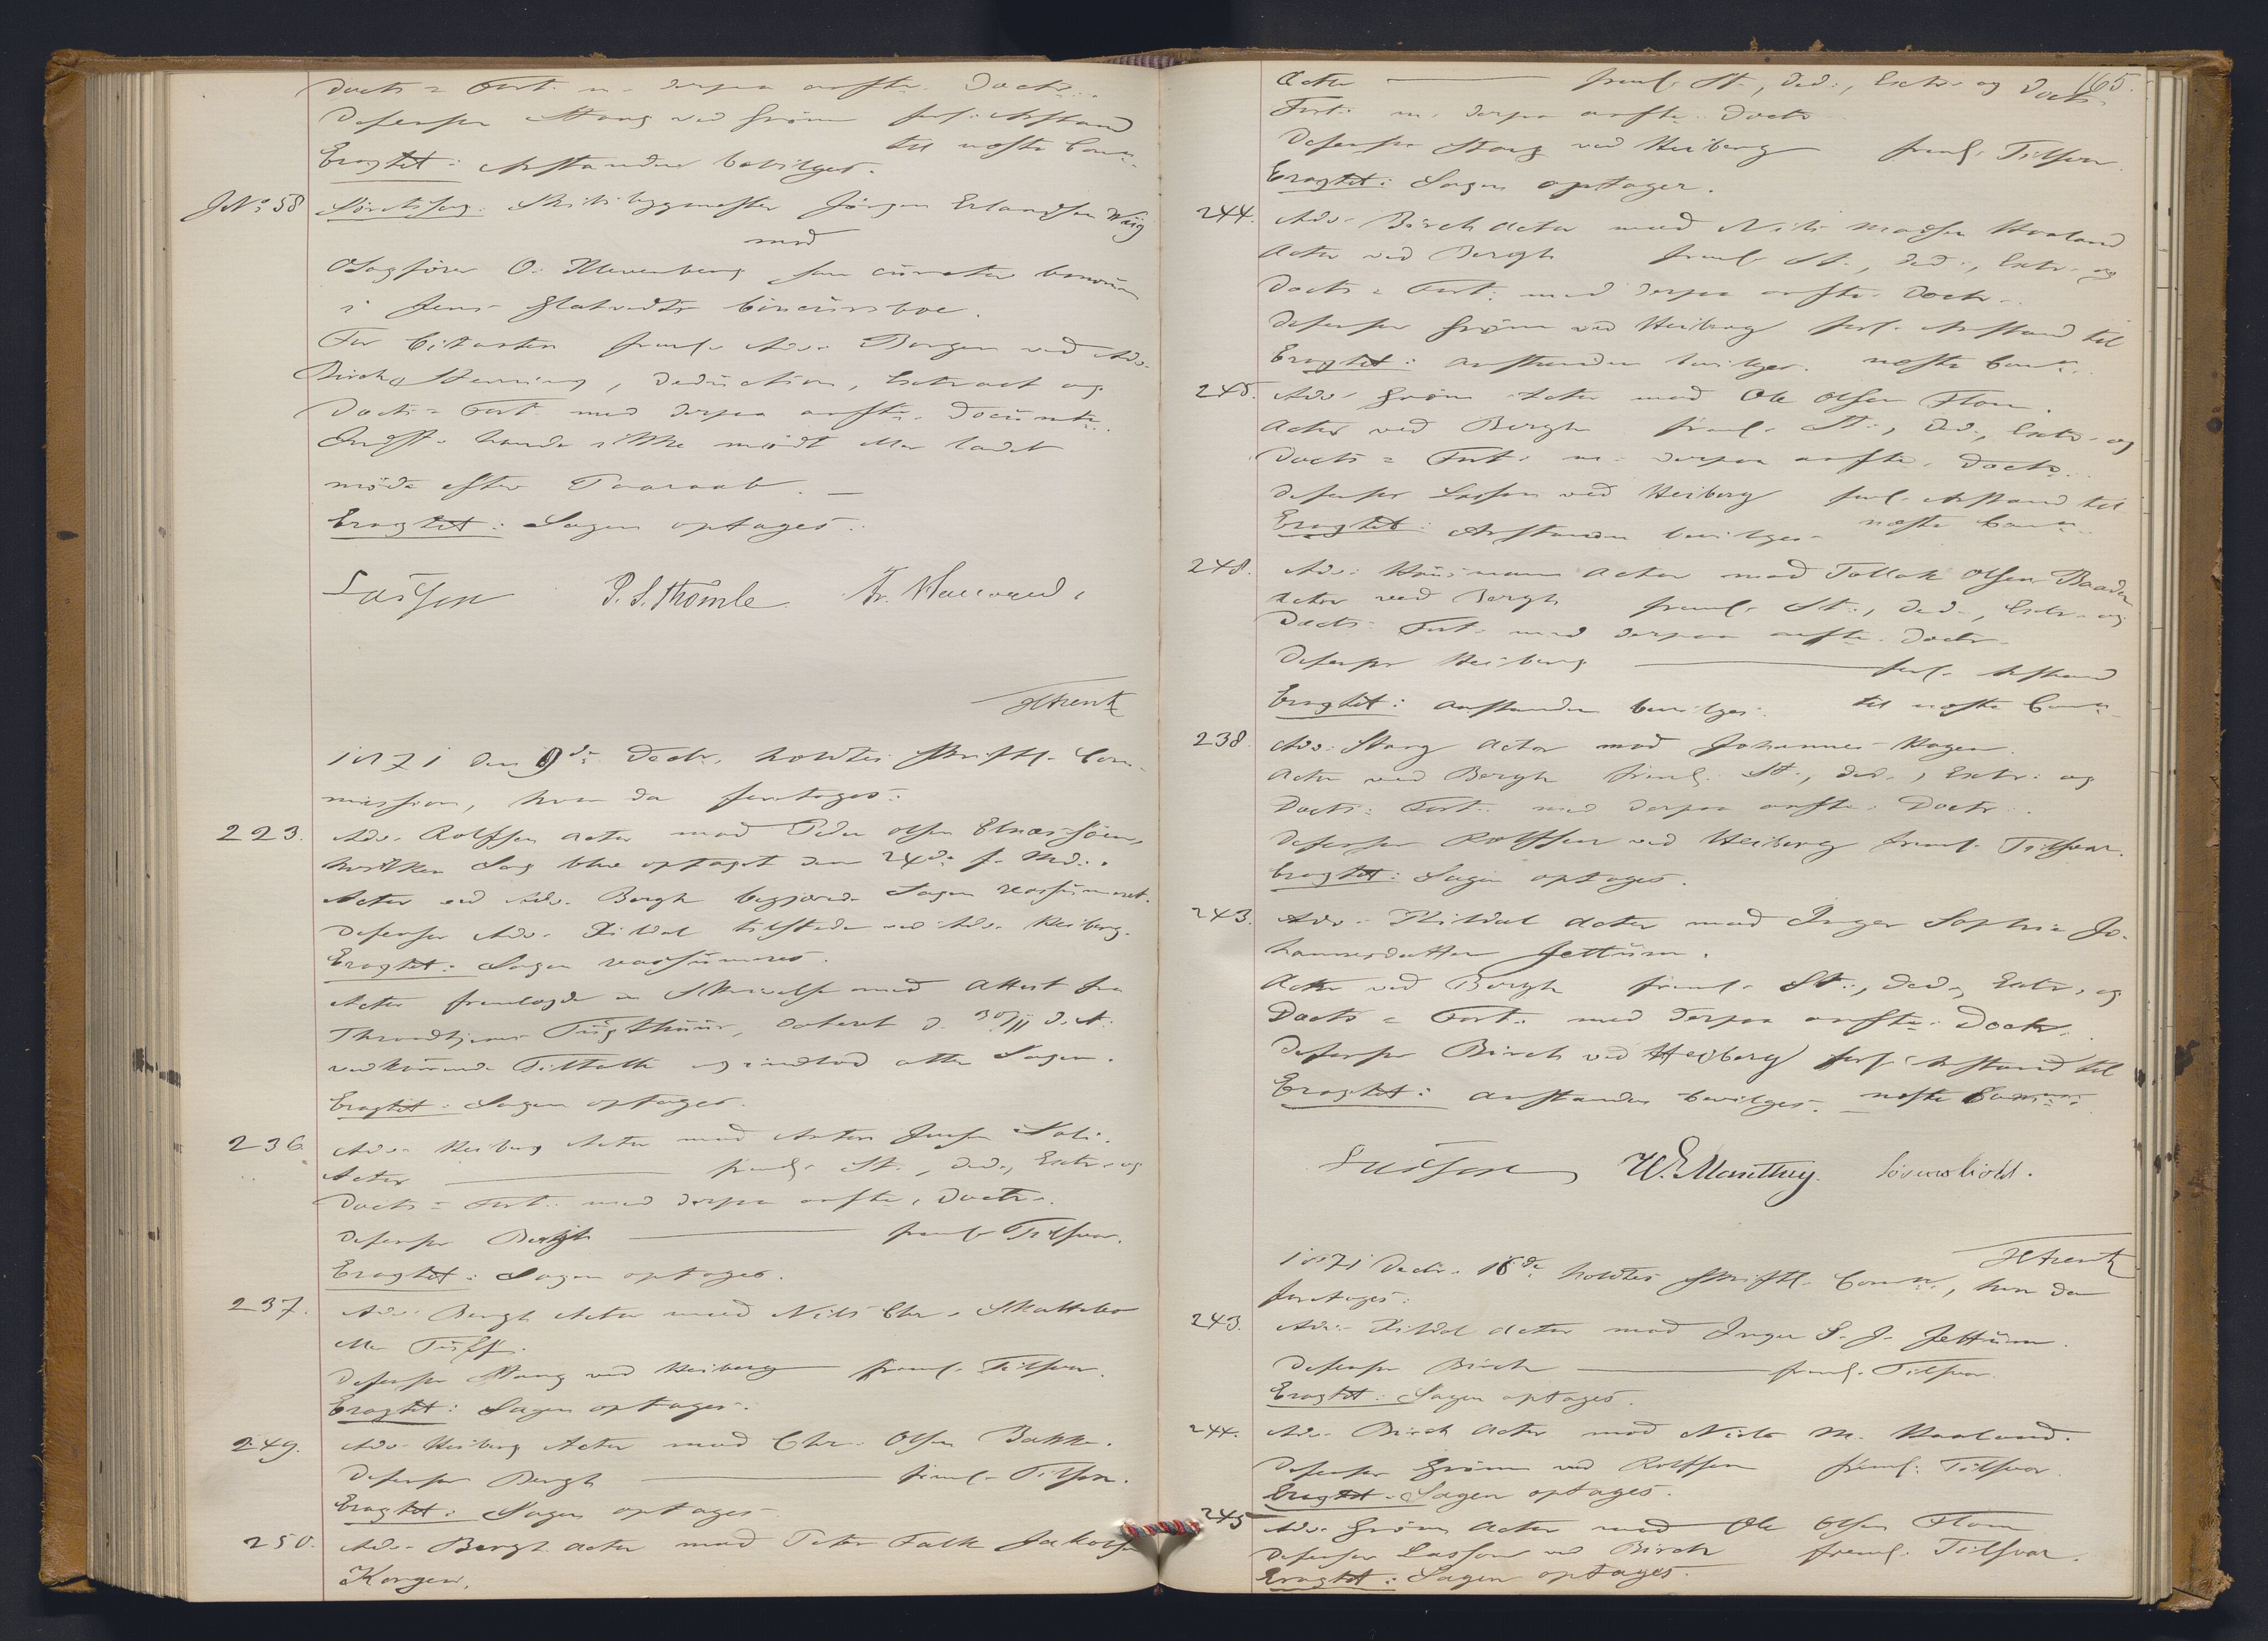 Docts = Fort. m. derpaa anførte Docte.
Defensor Stang ved Gröm forl. Anstand
til næste Comn.
Eragtet: Anstanden bevilges.
JNo 58 Söretssag. Skibsbygmester Jörgen Erlandsen Wiig
mod
OSagförer O. Klevenberg som curator bonorum
i Jens Slatvedts Concursboe.
For Citanten freml. Adv. Borgen ved Adv.
Birch Stevning, Deduction, Extract og
Docts = Fort. med derpaa anførte Documte.
Indst. havde ikke mödt eller ladet
möde efter Paaraab. —
Eragtet: Sagen optages.
Lasson P. S. Thomle Fr. Hallager
HArentz
1871 den 9de Decbr. holdtes skriftl. Com-
mission, hvor da foretoges:
223. Adv. Rolfsen Actor mod Peder Olsen Elnæs-Söen,
hvilken Sag blev optaget den 24de f. Md.
Actor ved Adv. Bergh begjærede Sagen reassumeret.
Defensor Adv. Kildal tilstede ved Adv. Heiberg.
Eragtet: Sagen reassumeres.
Actor fremlagde en Skrivelse med Attest fra
Throndhjems Tugthuus, dateret d. 30/11 d. A.
vedkommende Tiltalte og indlod atter Sagen.
Eragtet: Sagen optages.
236. Adv. Heiberg Actor mod Anton Jensen
Actor — freml. St., Ded., Extr. og
Docts = Fort. med derpaa anførte Docte.
Defensor Bergh — freml. Tilsvar.
Eragtet: Sagen optages.
237. Adv. Bergh Actor mod Nils Chr. Skattebo
eller Tuff.
Defensor Stang ved Heiberg freml. Tilsvar.
Eragtet: Sagen optages.
249. Adv. Heiberg Actor mod Chr. Olsen Bakke.
Defensor Bergh — freml. Tilsvar.
Eragtet: Sagen optages.
250. Adv. Bergh Actor mod Peter Falk Jakobsen
Kongen.
165.
Actor — freml. St., Ded., Extr. og Docts
Fort. m. derpaa anførte Docte
Defensor Stang ved Heiberg freml. Tilsvar.
Eragtet: Sagen optages.
244. Adv. Birch Actor mod Nils Madsen Haaland
Actor ved Bergh freml. St., Ded., Extr. og
Docts = Fort. med derpaa anførte Docte.
Defensor Gröm ved Heiberg forl. Anstand til
Eragtet: Anstanden bevilges. næste Comn.
245. Adv. Gröm Actor mod Ole Olsen Flom.
Actor ved Bergh freml. St., Ded., Extr. og
Docts = Fort. m. derpaa anførte Docte.
Defensor Lasson ved Heiberg forl. Anstand til
Eragtet: Anstanden bevilges. næste Comn.
248. Adv. Actor mod Tollak Olsen Baadn
Actor ved Bergh freml. St., Ded., Extr. og
Docts Fort. med derpaa anførte Docte.
Defensor Heiberg — forl. Anstand
Eragtet: Anstanden bevilges. til næste Comn.
238. Adv. Stang Actor mod Johannes Hagen.
Actor ved Bergh freml. St., Ded., Extr. og
Docts = Fort. med derpaa anførte Docte.
Defensor Rolfsen ved Heiberg freml. Tilsvar.
Eragtet: Sagen optages.
243. Adv. Kildal Actor mod Inger Sophie Jo-
hannesdatter Jettum.
Actor ved Bergh freml. St., Ded., Extr. og
Docts = Fort. med derpaa anførte Docte.
Defensor Birch ved Heiberg forl. Anstand til
Eragtet: Anstanden bevilges. næste Comm.
Lasson W. E. Manthey Lövenskiold.
HArentz
1871 Decbr. 16de holdtes skriftl. Comn., hvor da
foretoges:
243. Adv. Kildal Actor mod Inger S. J. Jettum.
Defensor Birch — freml. Tilsvar.
Eragtet: Sagen optages.
244. Adv. Birch Actor mod Niels M. Haaland.
Defensor Gröm ved Rolfsen freml. Tilsvar.
Eragtet: Sagen optages.
245 Adv. Gröm Actor mod Ole Olsen Flom
Defensor Lasson ved Birch freml. Tilsvar.
Eragtet: Sagen optages.